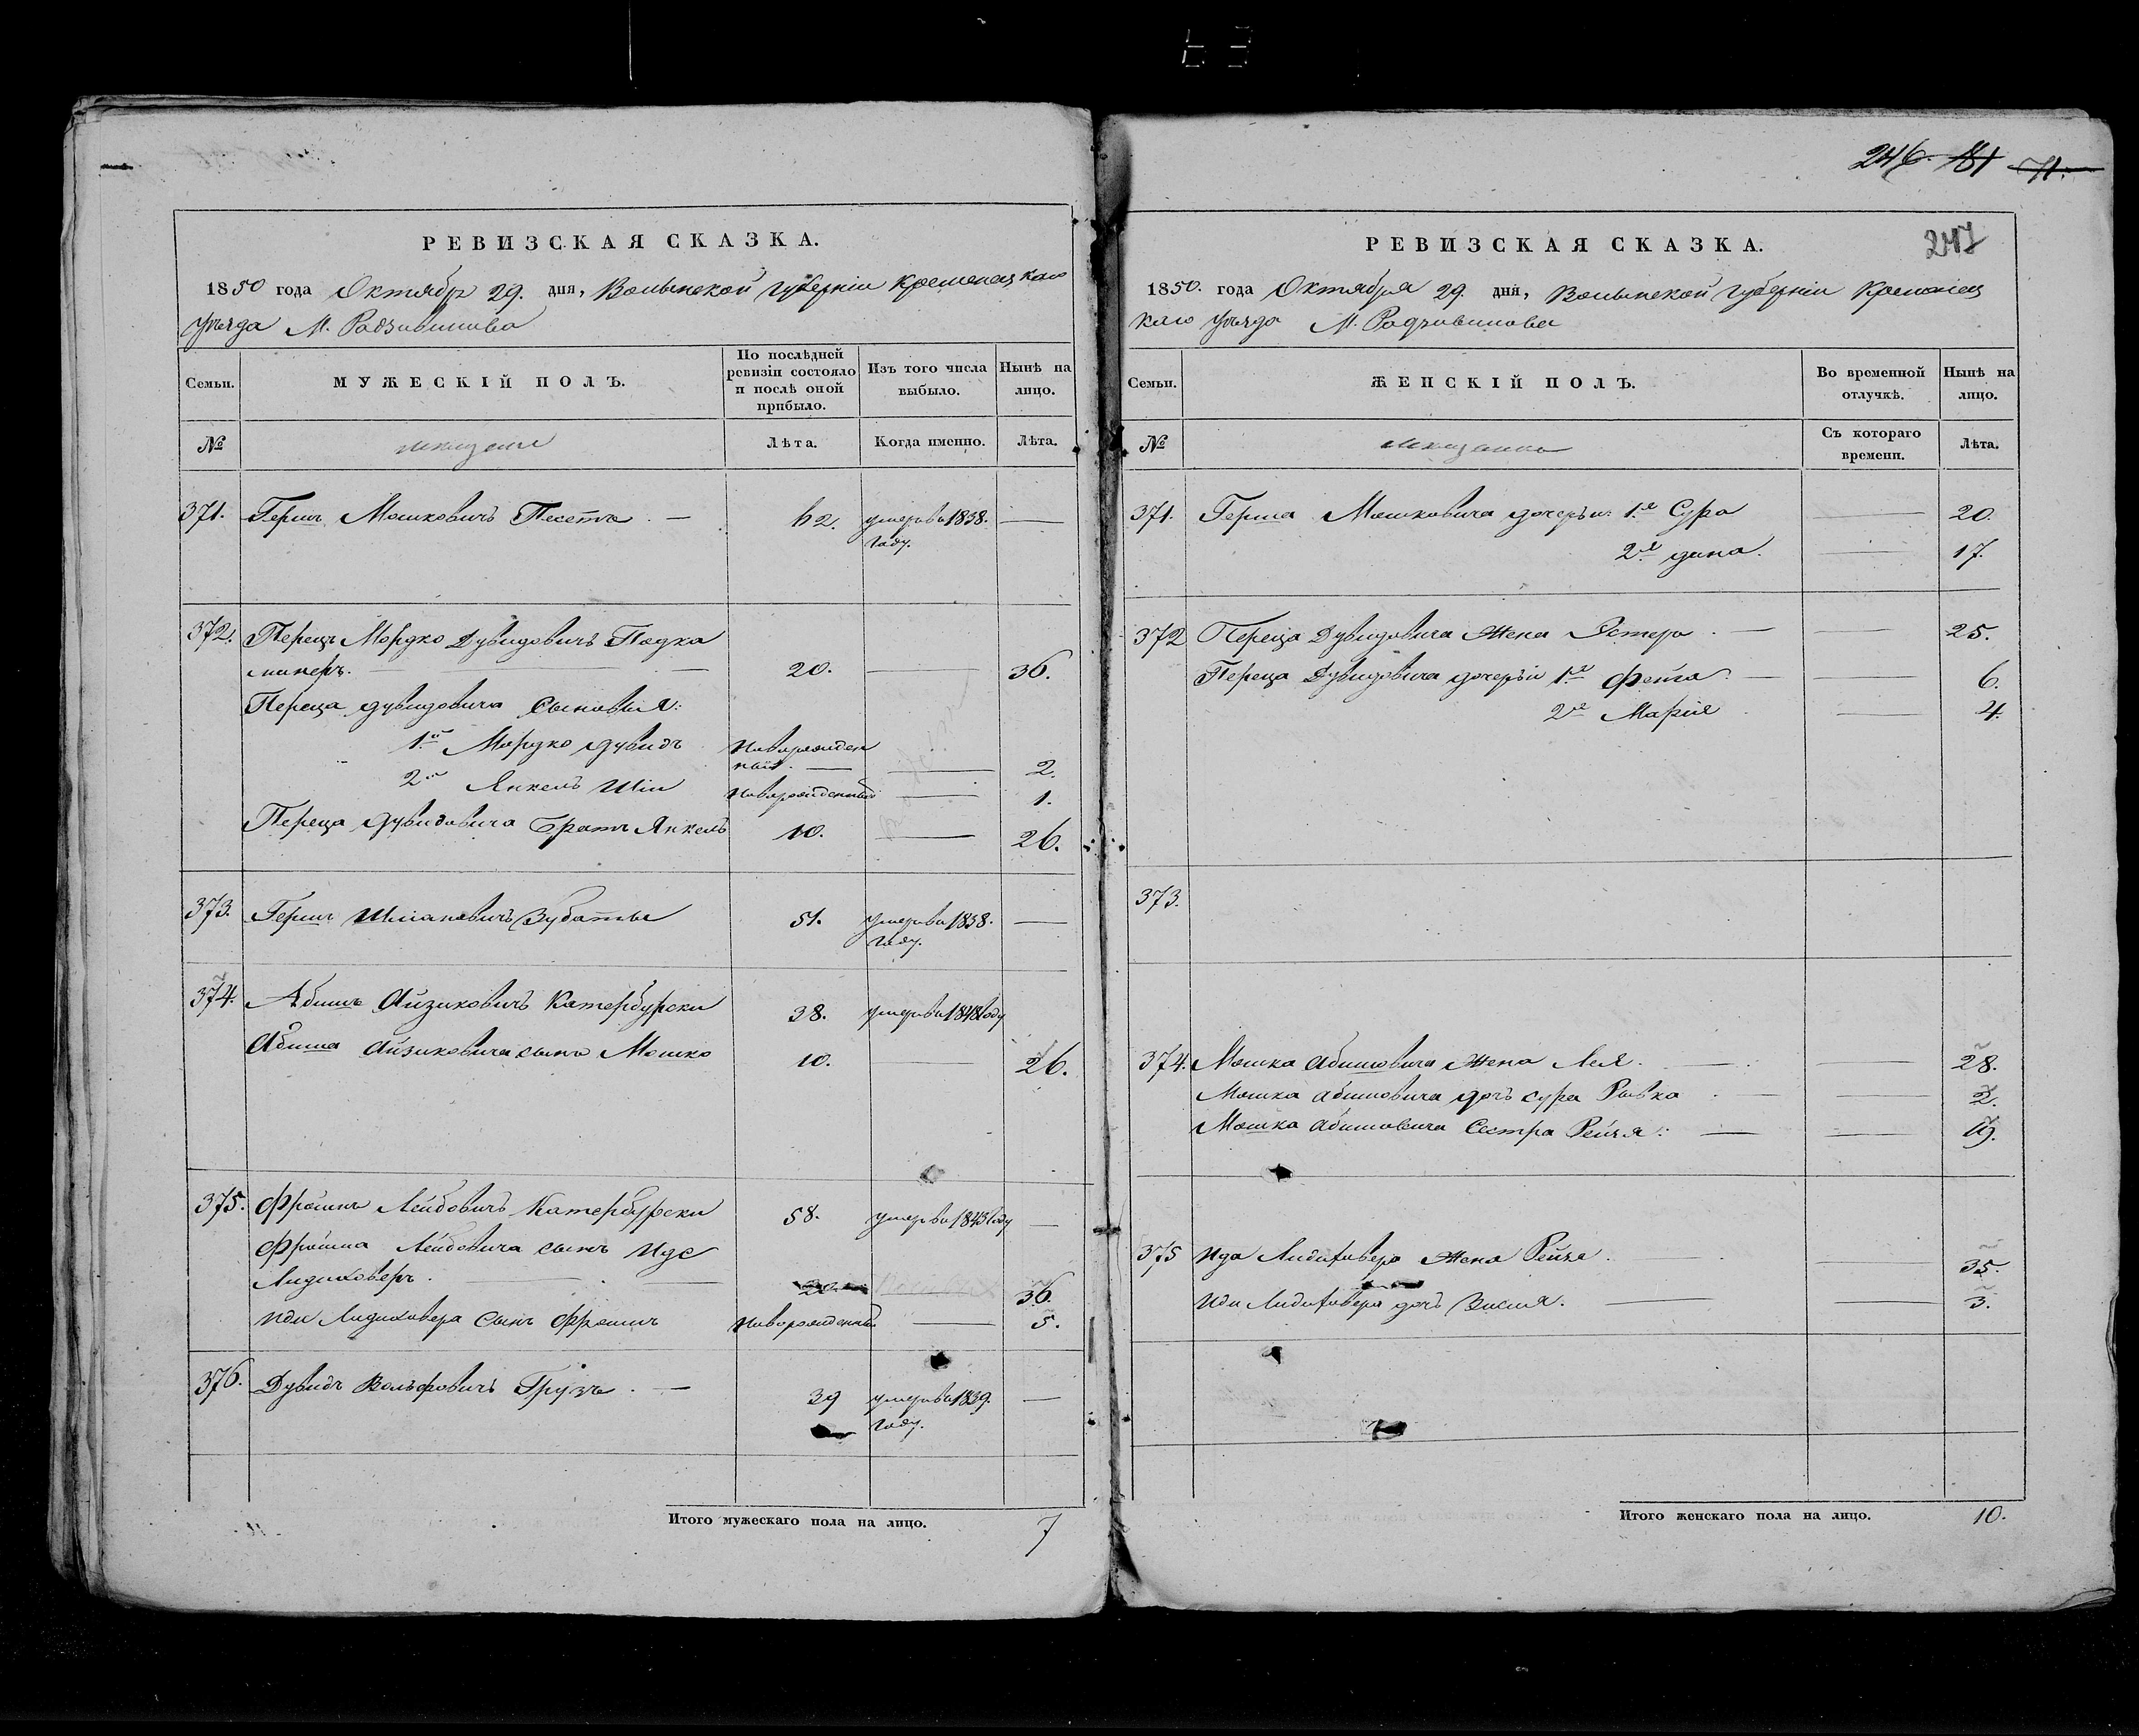 246. 181 71.
РЕВИЗСКАЯ СКАЗКА.
1850 года Октября 29. дня, Волынской губернiи Кременецкаго
уѣзда М. Радзивилова
Семьи.
МУЖЕСКІЙ ПОЛЪ.
По послѣдней ревизіи состояло и послѣ оной прибыло.
Изъ того числа выбыло.
Нынѣ на лицо.
№
мещане
Лѣта.
Когда именно.
Лѣта.
371. Гершъ Мошковичъ 62. умеръ въ 1838. —
году.
372. Перецъ Мордко Дувидовичъ Подка
минеръ. — 20. — 36.
Переца Дувидовича сыновья:
1й Мордко Дувидъ новорожден
ный. — — 2.
2й Янкель Шіи новорожденный — 1.
Переца Дувидовича братъ Янкель 10. — 26.
373. Гершъ Зубаты 51. умеръ въ 1838. —
году.
374. Абишъ Айзиковичъ Катербурски 38. умеръ въ 1848 году
Абиша Айзиковича сынъ Мошко 10. — 26.
375. Фроимъ Лейбовичъ Катербурски 58. умеръ въ 1843 году —
Фроима Лейбовича сынъ Идс
Лидиховеръ. — 20 36.
Иды Лидиховера сынъ Фроимъ новорожденный — 5.
376. Дувидъ Вольфовичъ Грузъ. — 39 умеръ въ 1839. —
году.
Итого мужескаго пола на лицо. 7
РЕВИЗСКАЯ СКАЗКА. 247
1850. года Октября 29. дня, Волынской губернiи Кременец
каго уѣзда М. Радзивилова
Семьи.
ЖЕНСКІЙ ПОЛЪ.
Во временной отлучкѣ.
Нынѣ на лицо.
№
мещанки
Съ котораго времени.
Лѣта.
371. Герша Мошковича дочери: 1я Сура — 20.
2я Дина. — 17.
372 Переца Дувидовича жена Эстера. — — 25.
Переца Дувидовича дочерьи 1я Фейга. — — 6.
2я Марія — 4.
373.
374. Мошка Абишовича жена Лея. — — 28.
Мошка Абишовича дочь Сура Ривка. — — 2.
Мошка Абишовича сестра Рейзя: — — 19.
375 Ида Лидиховера жена Рейзя. — — 35.
Иды Лидиховера дочь — — 3.
Итого женскаго пола на лицо. 10.